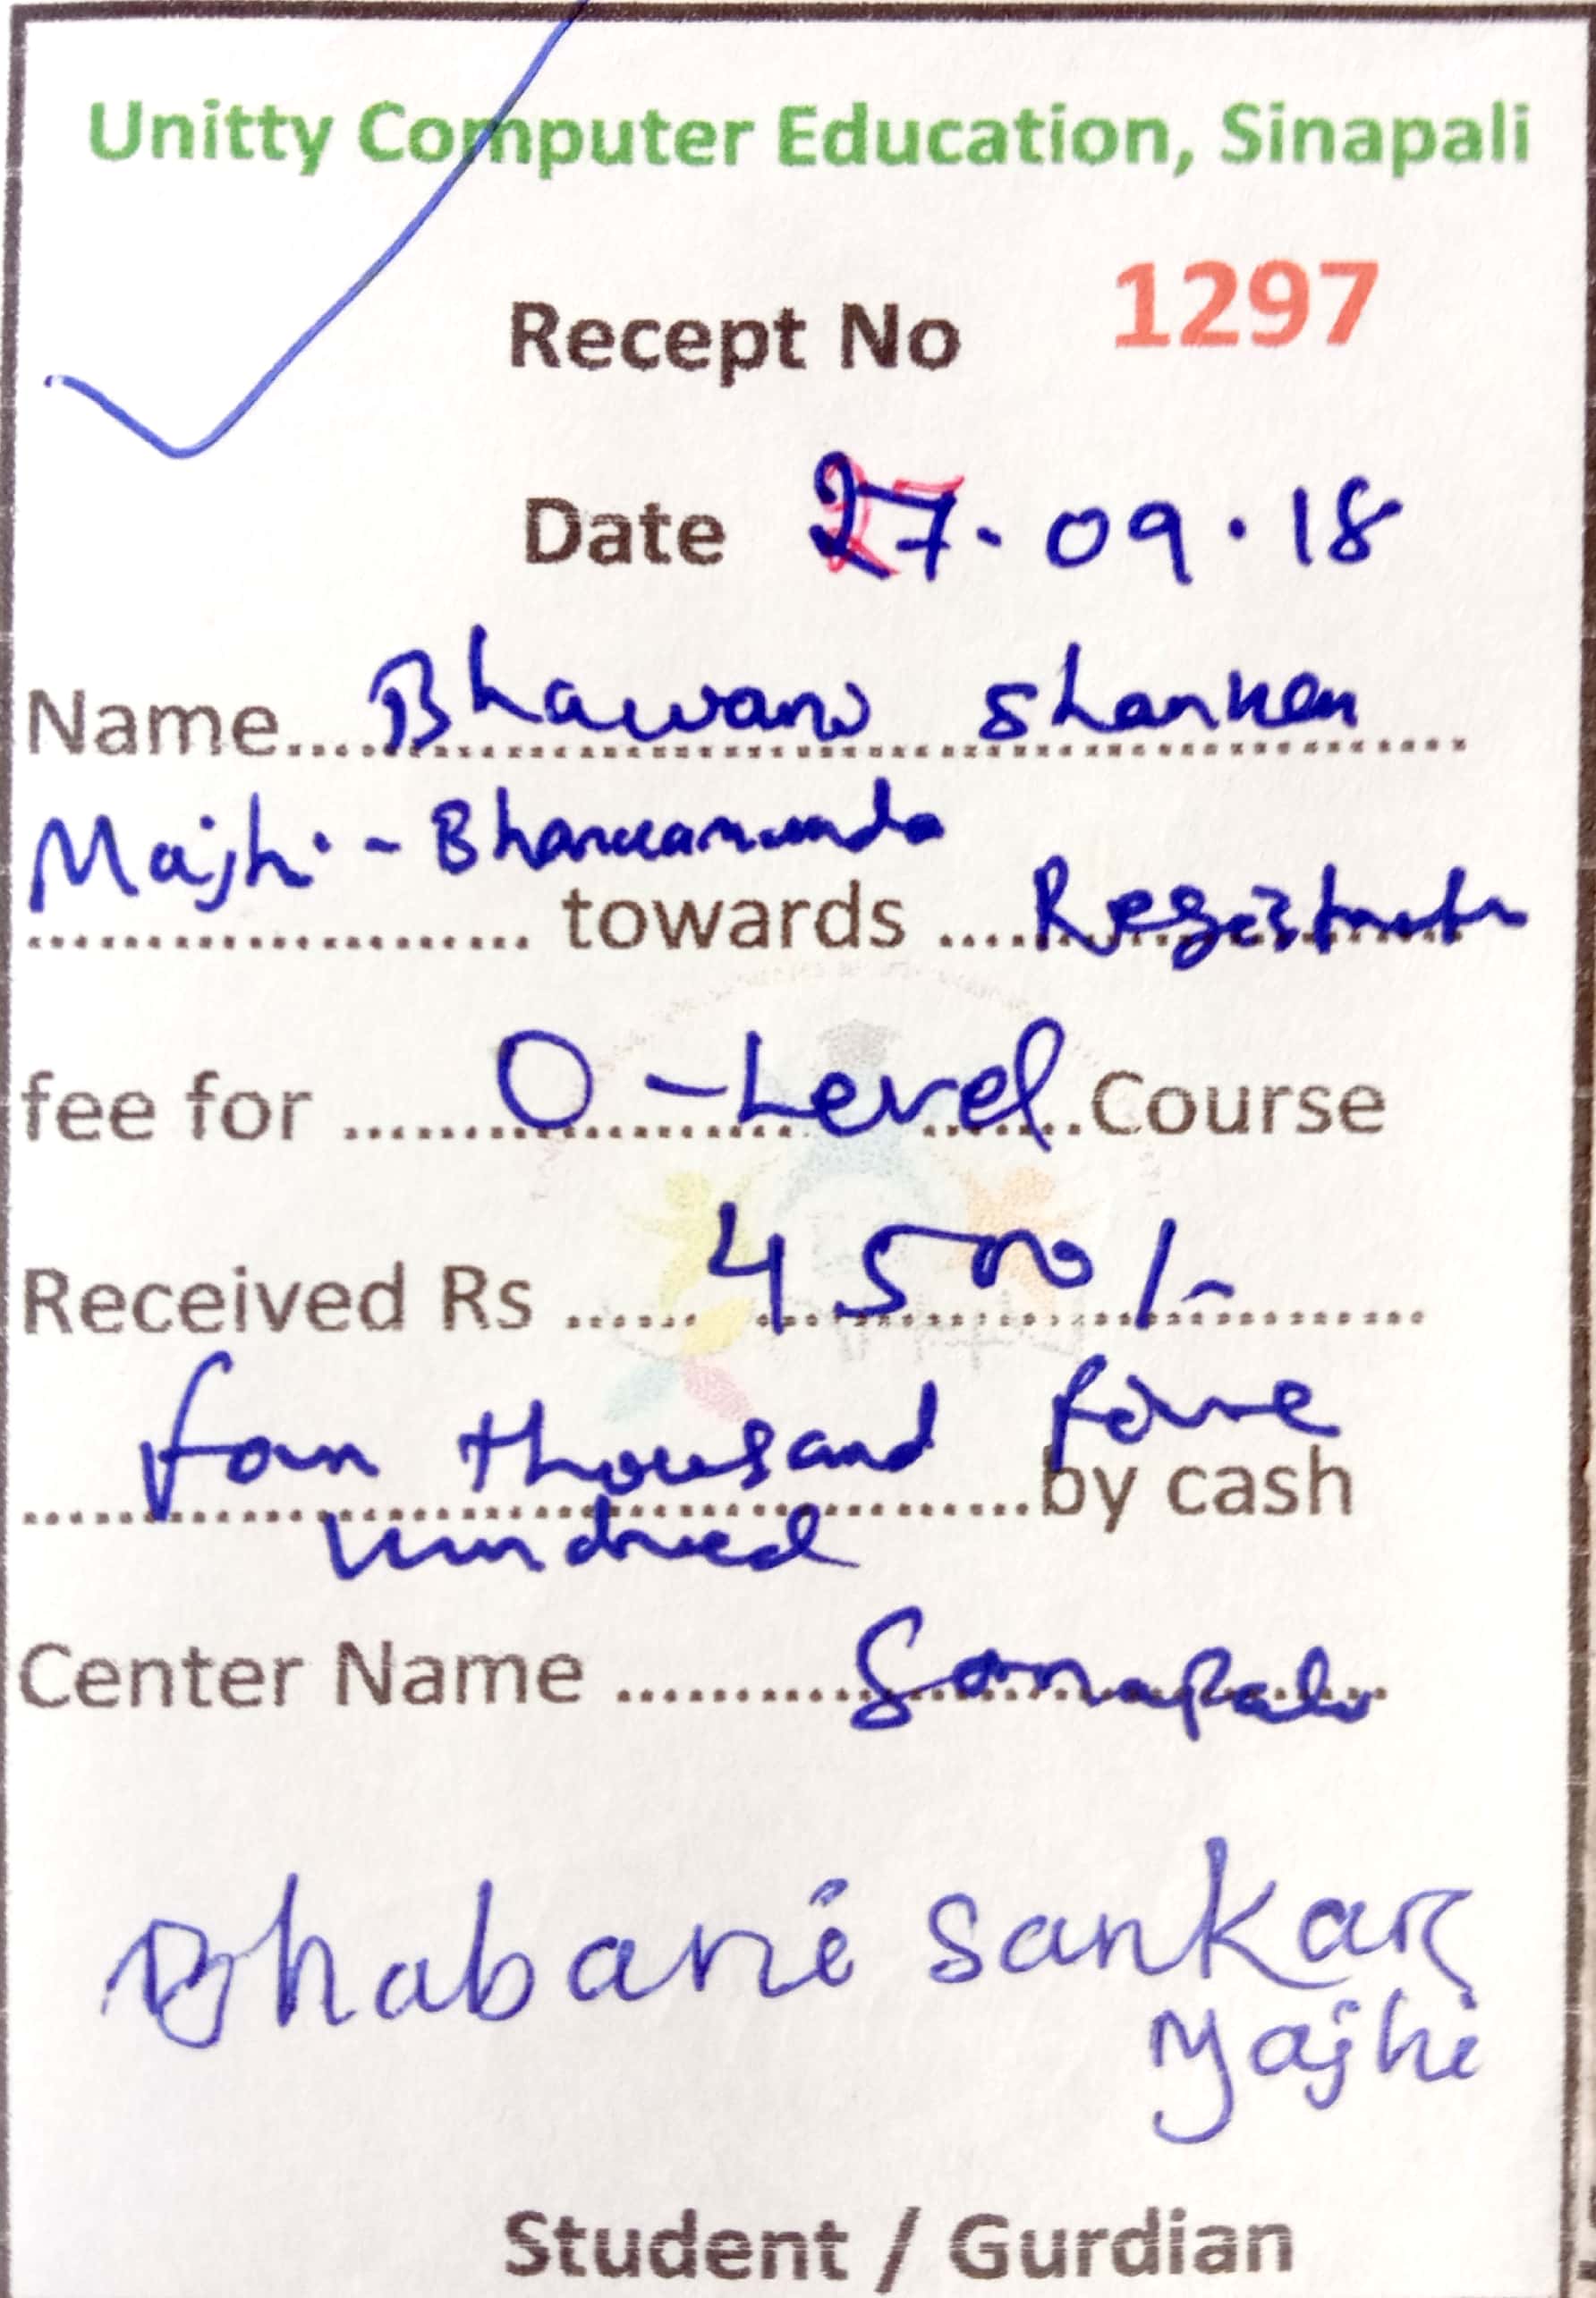 Unitty Computer Education, Sinapali
Recept No 1297
Date 27.09.18
Name.... Bhawani Shanker
Majhi - towards ....
fee for ..... O-Level ..... Course
Received Rs ...... 4500/-
four thousand five by cash
hundred
Center Name .......... Sinapali
Bhabani Sankar
Majhi
Student / Gurdian